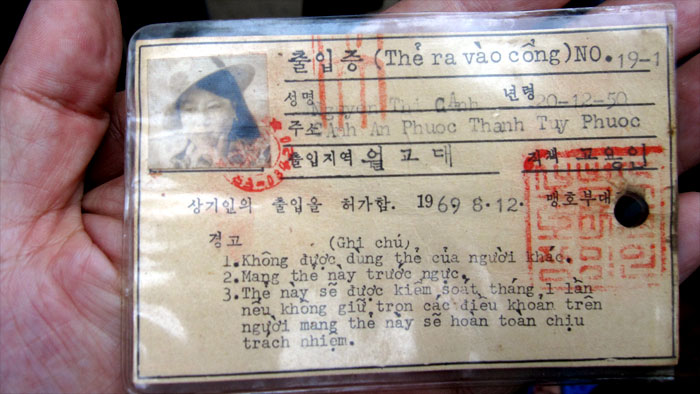 출입증 (Thẻ ra vào cổng) NO. 19-1
성명 Nguyen Thi Cảnh 년령 20-12-50
주소 Anh An Phuoc Thanh Tuy Phuoc
출입지역 월고대 직책 고용인
상기인의 출입을 허가함. 1969 8.12. 맹호부대
경고 (Ghi chú)
1. Không được dùng thẻ của người khác.
2. Mang thẻ này trước ngực.
3. Thẻ này sẽ được kiểm soát tháng 1 lần
nếu không giữ trọn các điều khoản trên
người mang thẻ này sẽ hoàn toàn chịu
trách nhiệm.